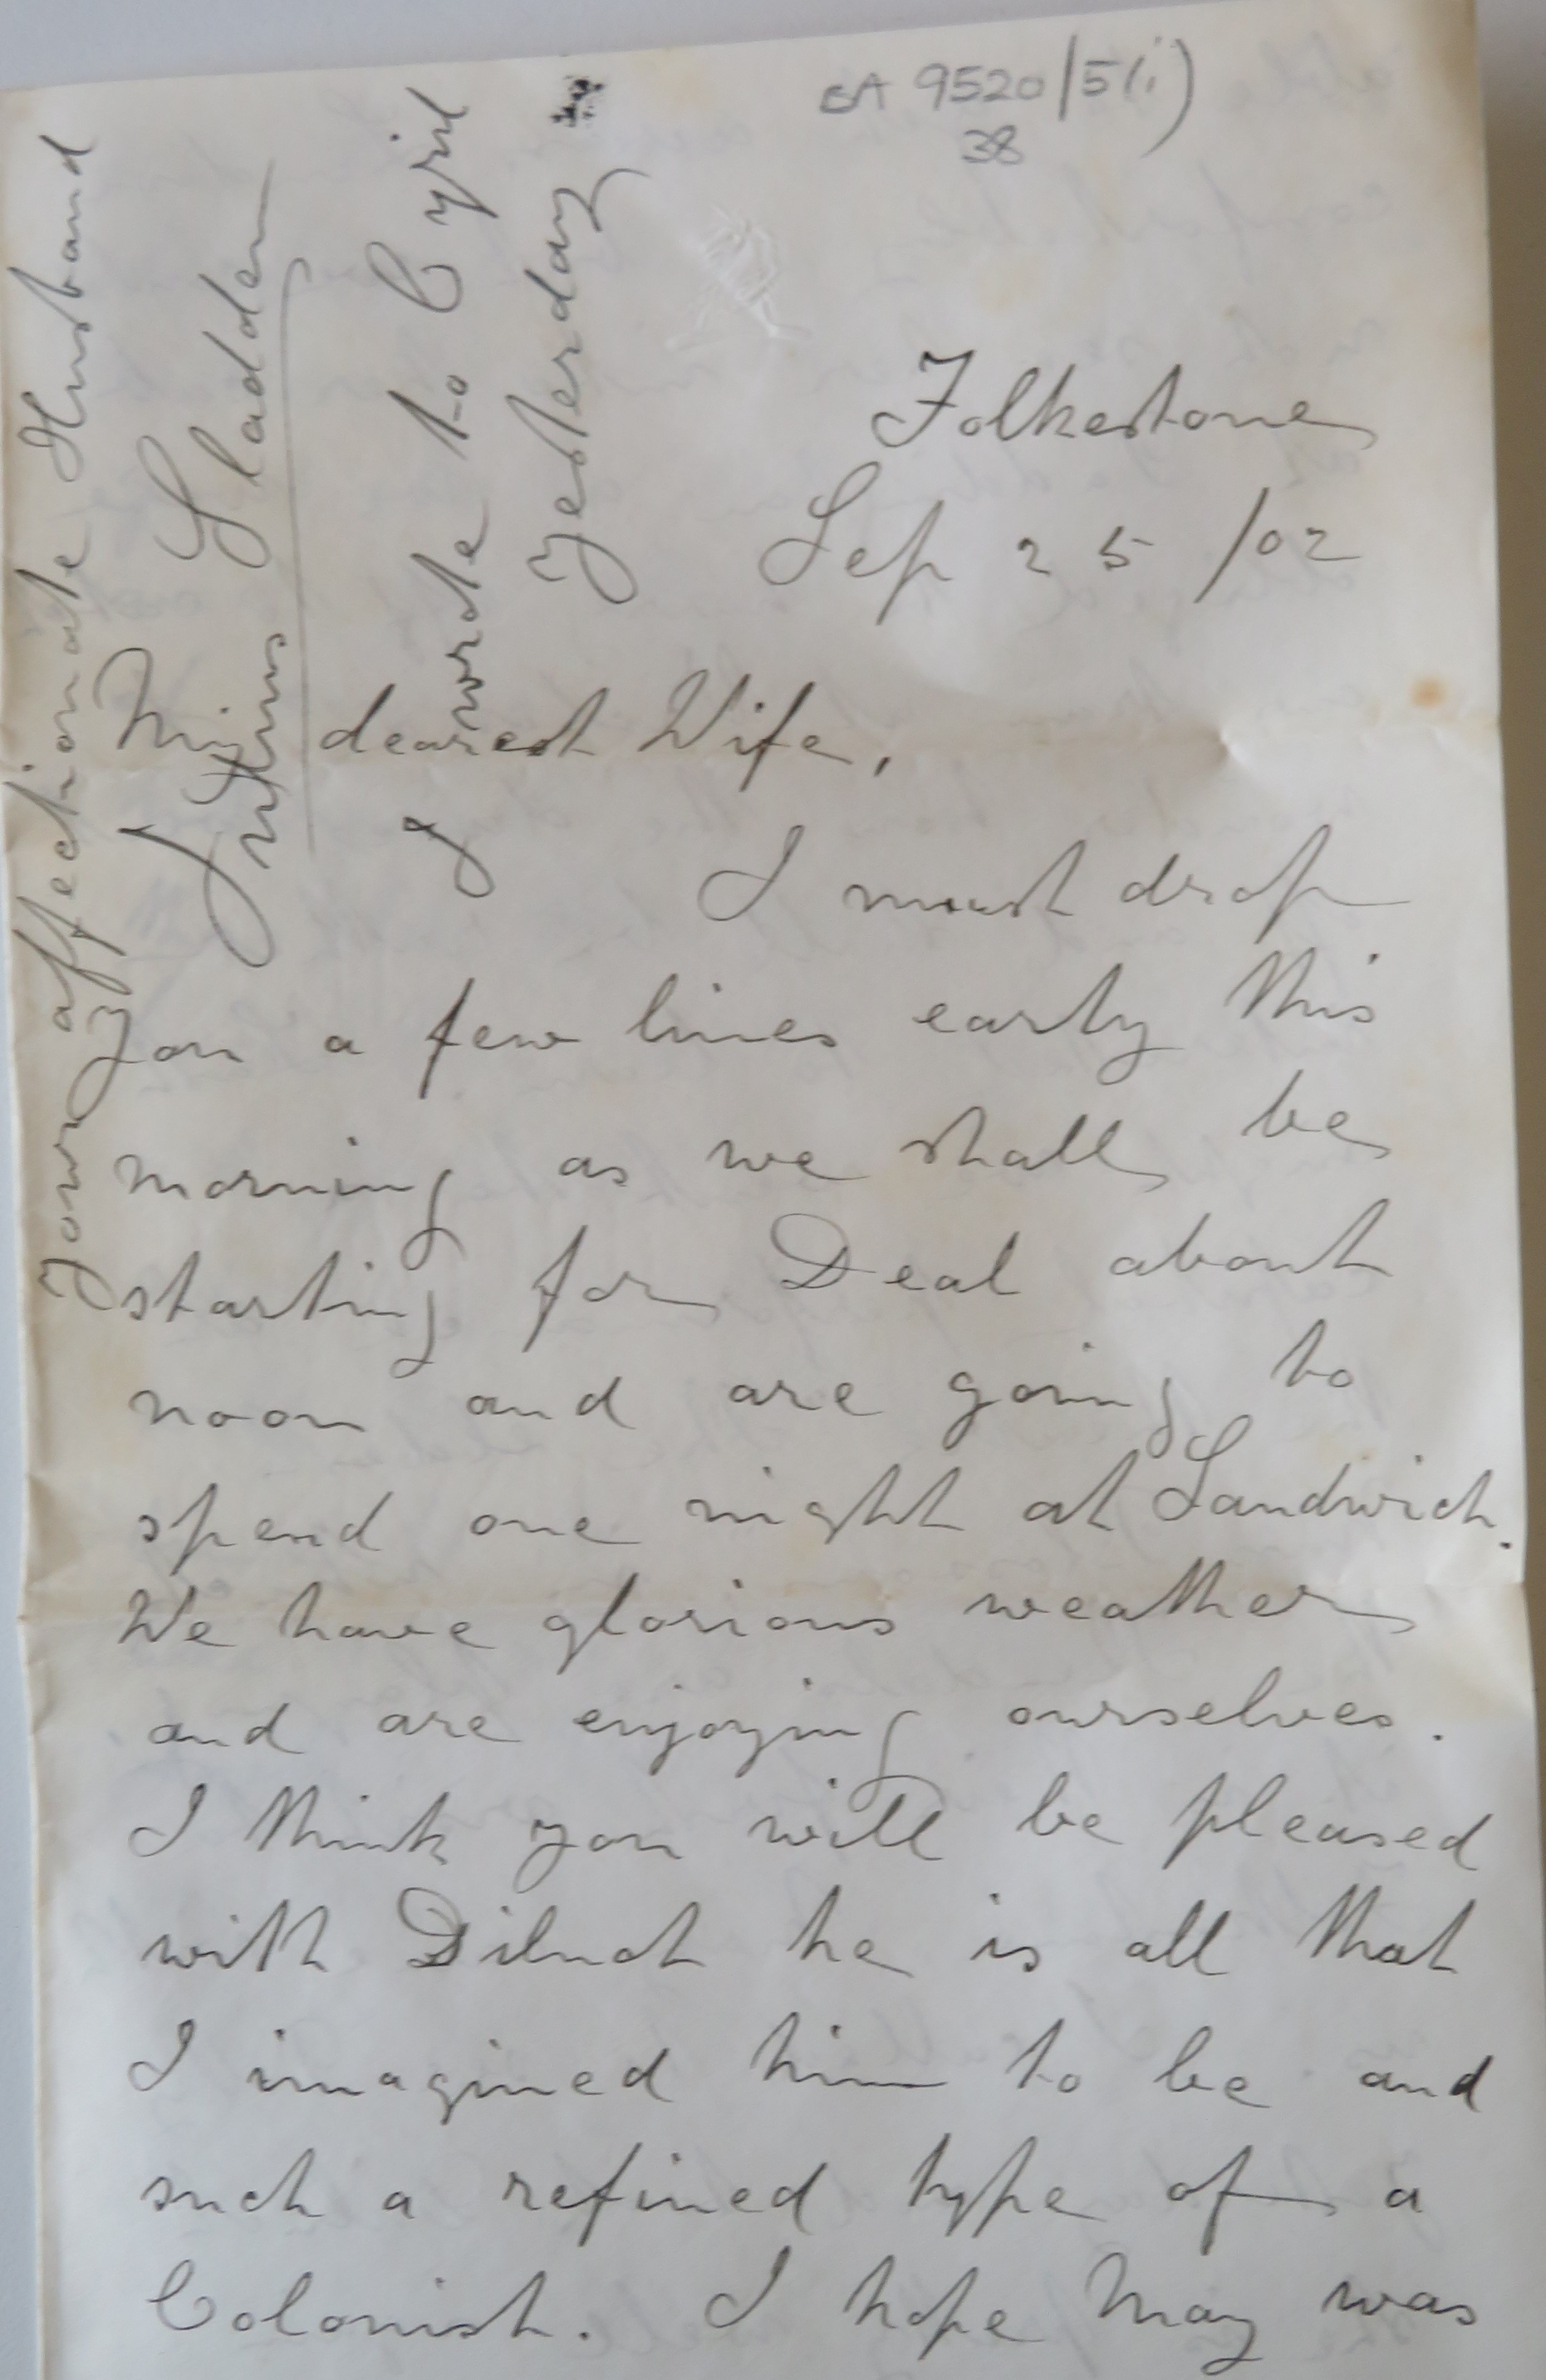 BA 9520/5(i)
38
Folkestone
Sep 25/02
My dearest Wife,
I must drop
you a few lines early this
morning as we shall be
starting for Deal about
noon and are going to
spend one night at Sandwich.
We have glorious weather
and are enjoying ourselves.
I think you will be pleased
with Dilnot he is all that
I imagined him to be and
such a refined type of a
Colonist. I hope May was
Your affectionate Husband
Julius Sladden
I wrote to Cyril
yesterday